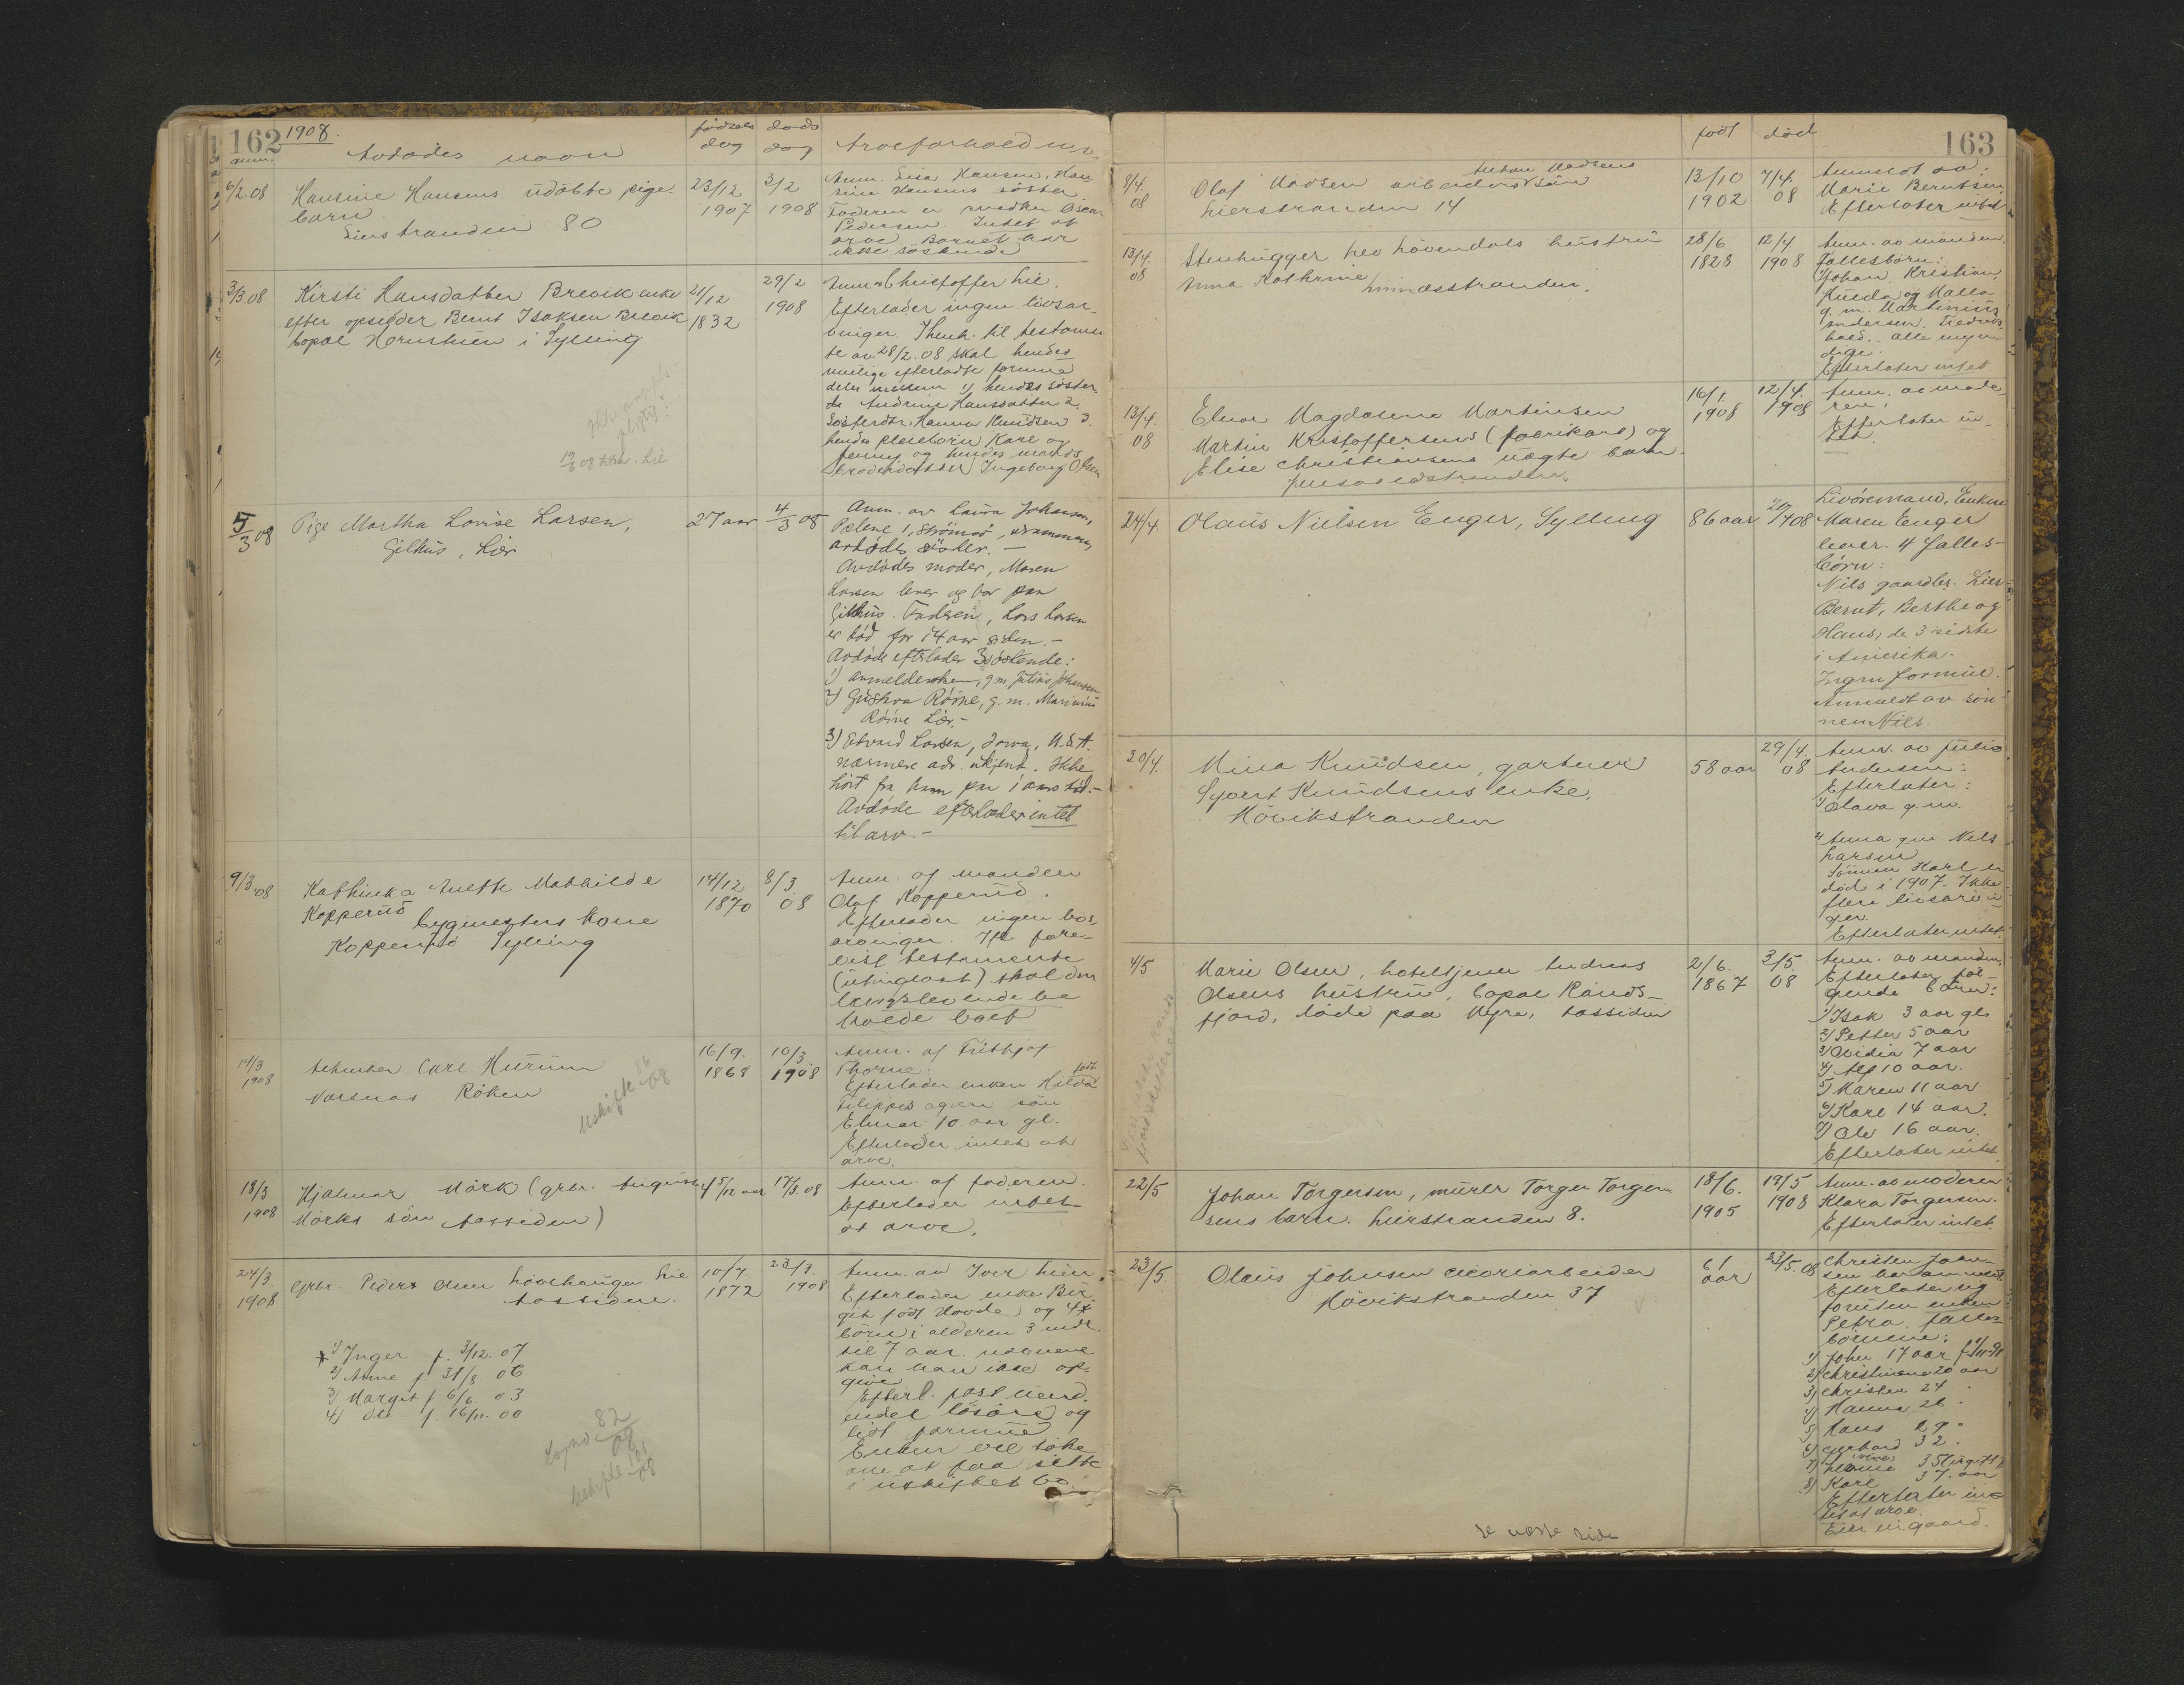 162 1908.
anm.
Avdødes navn
fødsels
dag
døds
dag
Arveforhold m.v.
6/2.08
Hansine Hansens udøbte pige-
barn
Lierstranden 80
23/12
1907
3/2
1908
Anm. Lisa Hansen, Han-
sine Hansens søster
Faderen er snedker Oscar
Pedersen. Intet at
arve. Barnet har
ikke søskende
3/3 08
Kirsti Hansdatter Brevik enke
efter opsidder Bernt Isaksen Brevik
bopæl Hornstuen i Sylling
21/12
1832
29/2
1908
Anm. Christoffer Lie.
Efterlader ingen livsar-
vinger. I henh. til testamen
te av 28/2.08 skal hendes
mulige efterladte formue
deles mellem 1) hendes søster
Andrine Hansdatter 2.
Søsterdtr. Hanna Knudsen 3.
hendes pleiebørn Karl og
Jenny og hendes mands
broderdatter Ingeborg Olsen
5/3 08
Pige Martha Lovise Larsen,
Gilhus, Lier
27 aar
4/3 08
Anm. av Laura Johansen,
Pælene 1, Strømsø, Drammen,
avdødes søster. –
Avdødes moder, Maren
Larsen lever og bor paa
Gilhus. Faderen, Lars Larsen
er død for 14 aar siden. –
Avdøde efterlader 3 søskende:
1) anmeldersken, g.m. Julius Johansen
2) Gustava Røine, g.m. Marinius
Røine Lier. –
3) Edvard Larsen, Iowa, U.S.A.
nærmere adr. ukjendt. Ikke
hørt fra ham paa 1 aars tid. –
Avdøde efterlader intet
til arv. –
9/3 08
Kathinka Anette Mathilde
Kopperud bygmesters kone
Kopperud Sylling
14/12
1870
8/3
08
Anm. af manden
Olaf Kopperud.
Efterlader ingen livs-
arvinger. Ifl. fore-
vist testamente
skal den
længstlevende be
holde boet
14/3
1908
Carl Hurum
Nærsnes Røken
Uskifte 86/08
16/9.
1868
10/3
1908
Anm. af Frithjof
Thorne.
Efterlader enken Hilda født
Filippsd og en søn
Einar 10 aar gl.
Efterlader intet at
arve.
18/3
1908
Hjalmar Mørk (grbr. August
Mørks søn Tossiden)
4 5/12 aar
17/3.08
Anm. af faderen.
Efterlader intet
at arve.
24/3
1908
Grbr. Peder Olsen Lie
Tossiden.
10/7.
1872
23/3.
1908
Anm. av Iver Lien
Efterlader enke Bir-
git født Hovde og 4
børn i alderen 3 mdr.
til 7 aar. navnene
kan han ikke op-
give
Efterl. fast eiend.
endel løsøre og
lidt formue
Enken vil søke
om at faa sitte
i uskiftet bo
1) Inger f. 3/12. 07
2) Anne f 31/8 06
3) Margit f 6/6 03
4) Ole f 16/11. 00
82/08
Uskifte 08
født
død
163
8/4.
08
Anton Madsens
Olaf Madsen arbeider søn
Lierstranden 14
13/10
1902
7/4.
08
Anmeldt av:
Marie Berntsen
Efterlater intet
13/4.
08
Stenhugger Leo Løvendals hustru
Anna Kathrine
28/6
1828
12/4
1908
Anm. av manden.
Fællesbarn:
Johan Kristian,
Hulda og Kalla
g.m. Martinius
Andersen.
alle myn
dige.
Efterlater intet
13/4.
08
Einar Magdalena Martinsen
Martin Kristoffersens (fabrikarb) og
Elise Christiansens uægte barn.
16/1.
1908
12/4.
1908
Anm. av mode
ren.
Efterlater in-
tet.
24/4.
Olaus Nielsen Enger, Sylling
86 aar
20/4 08
Livøremand, Enken
Maren Enger
lever. 4 fælles-
børn:
Nils gaardbr. Lier
Bernt, Berthe og
Hans, de 3 sidste
i Amerika.
Ingen formue.
Anmeldt av søn-
nen Nils.
30/4.
Mina Knudsen, gartner
Syvert Knudsens enke,
Høvikstranden
58 aar
29/4.
08
Anm. av Julie
Andersen:
Efterlater:
1) Olava g.m.
2) Anna g.m. Nils
Larsen
Sønnen Karl er
død i 1907. Ikke
flere livsarvin
ger.
Efterlater intet.
4/5
Marie Olsen, hoteltjener Andreas
Olsens hustru, bopæl Rands-
fjord, døde paa Myre, Tossiden
2/6.
1867
3/5
08
Anm. av manden,
Efterlater føl-
gende børn:
1) Isak 3 aar gl.
2) Petter 5 aar
3) Ovidia 7 aar
4) Alf 10 aar.
5) Maren 11 aar
6) Karl 14 aar.
7) Ole 16 aar.
Efterlater intet.
22/5
Johan Torgersen, murer Torger Torger-
sens barn. Lierstranden 8.
18/6.
1905
19/5
1908
Anm. av moderen
Klara Torgersen.
Efterlater intet.
23/5.
Olaus Johnsen arbeider
Høvikstranden 37
61
aar
23/5.08
Christen Joan-
sen har anmeldt
Efterlater sig
foruten enken
Petra fælles
børnene:
1) John 17 aar
2) Christiane 20 aar
3) Christen 24 .
4) Hanna 26 .
5) Hans 29 .
6) Gerhard 32 .
7) 35 (ugift)
8) Karl 37. aar
Efterlater in-
tet at arve.
Eier en gaard.
Se næste side